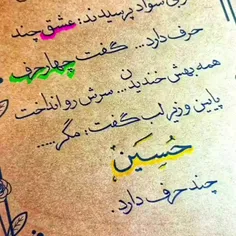 سواد پرسیدند: عشق چند
حرف دارد... گفت چهار حرف
همه بهش خندیدن... سرش رو انداخت
پایین و زیر لب گفت: مگر.....
حُسِین
چند حرف دارد.